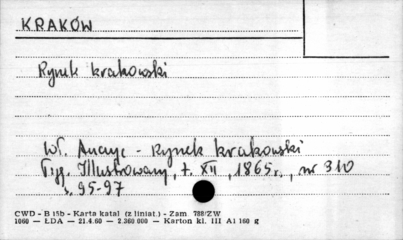 KRAKÓW
Rynek krakowski
Wł. Anczyc - Rynek krakowski
Tyg. Illustrowany, t. XII, 1865 r., nr 310
s. 95-97
CWD - B 15b - Karta katal (z liniat.) - Zam 788/ZW
1060 — ŁDA — 21.4.60 — 2.360 000 — Karton kl. III A1 160 g